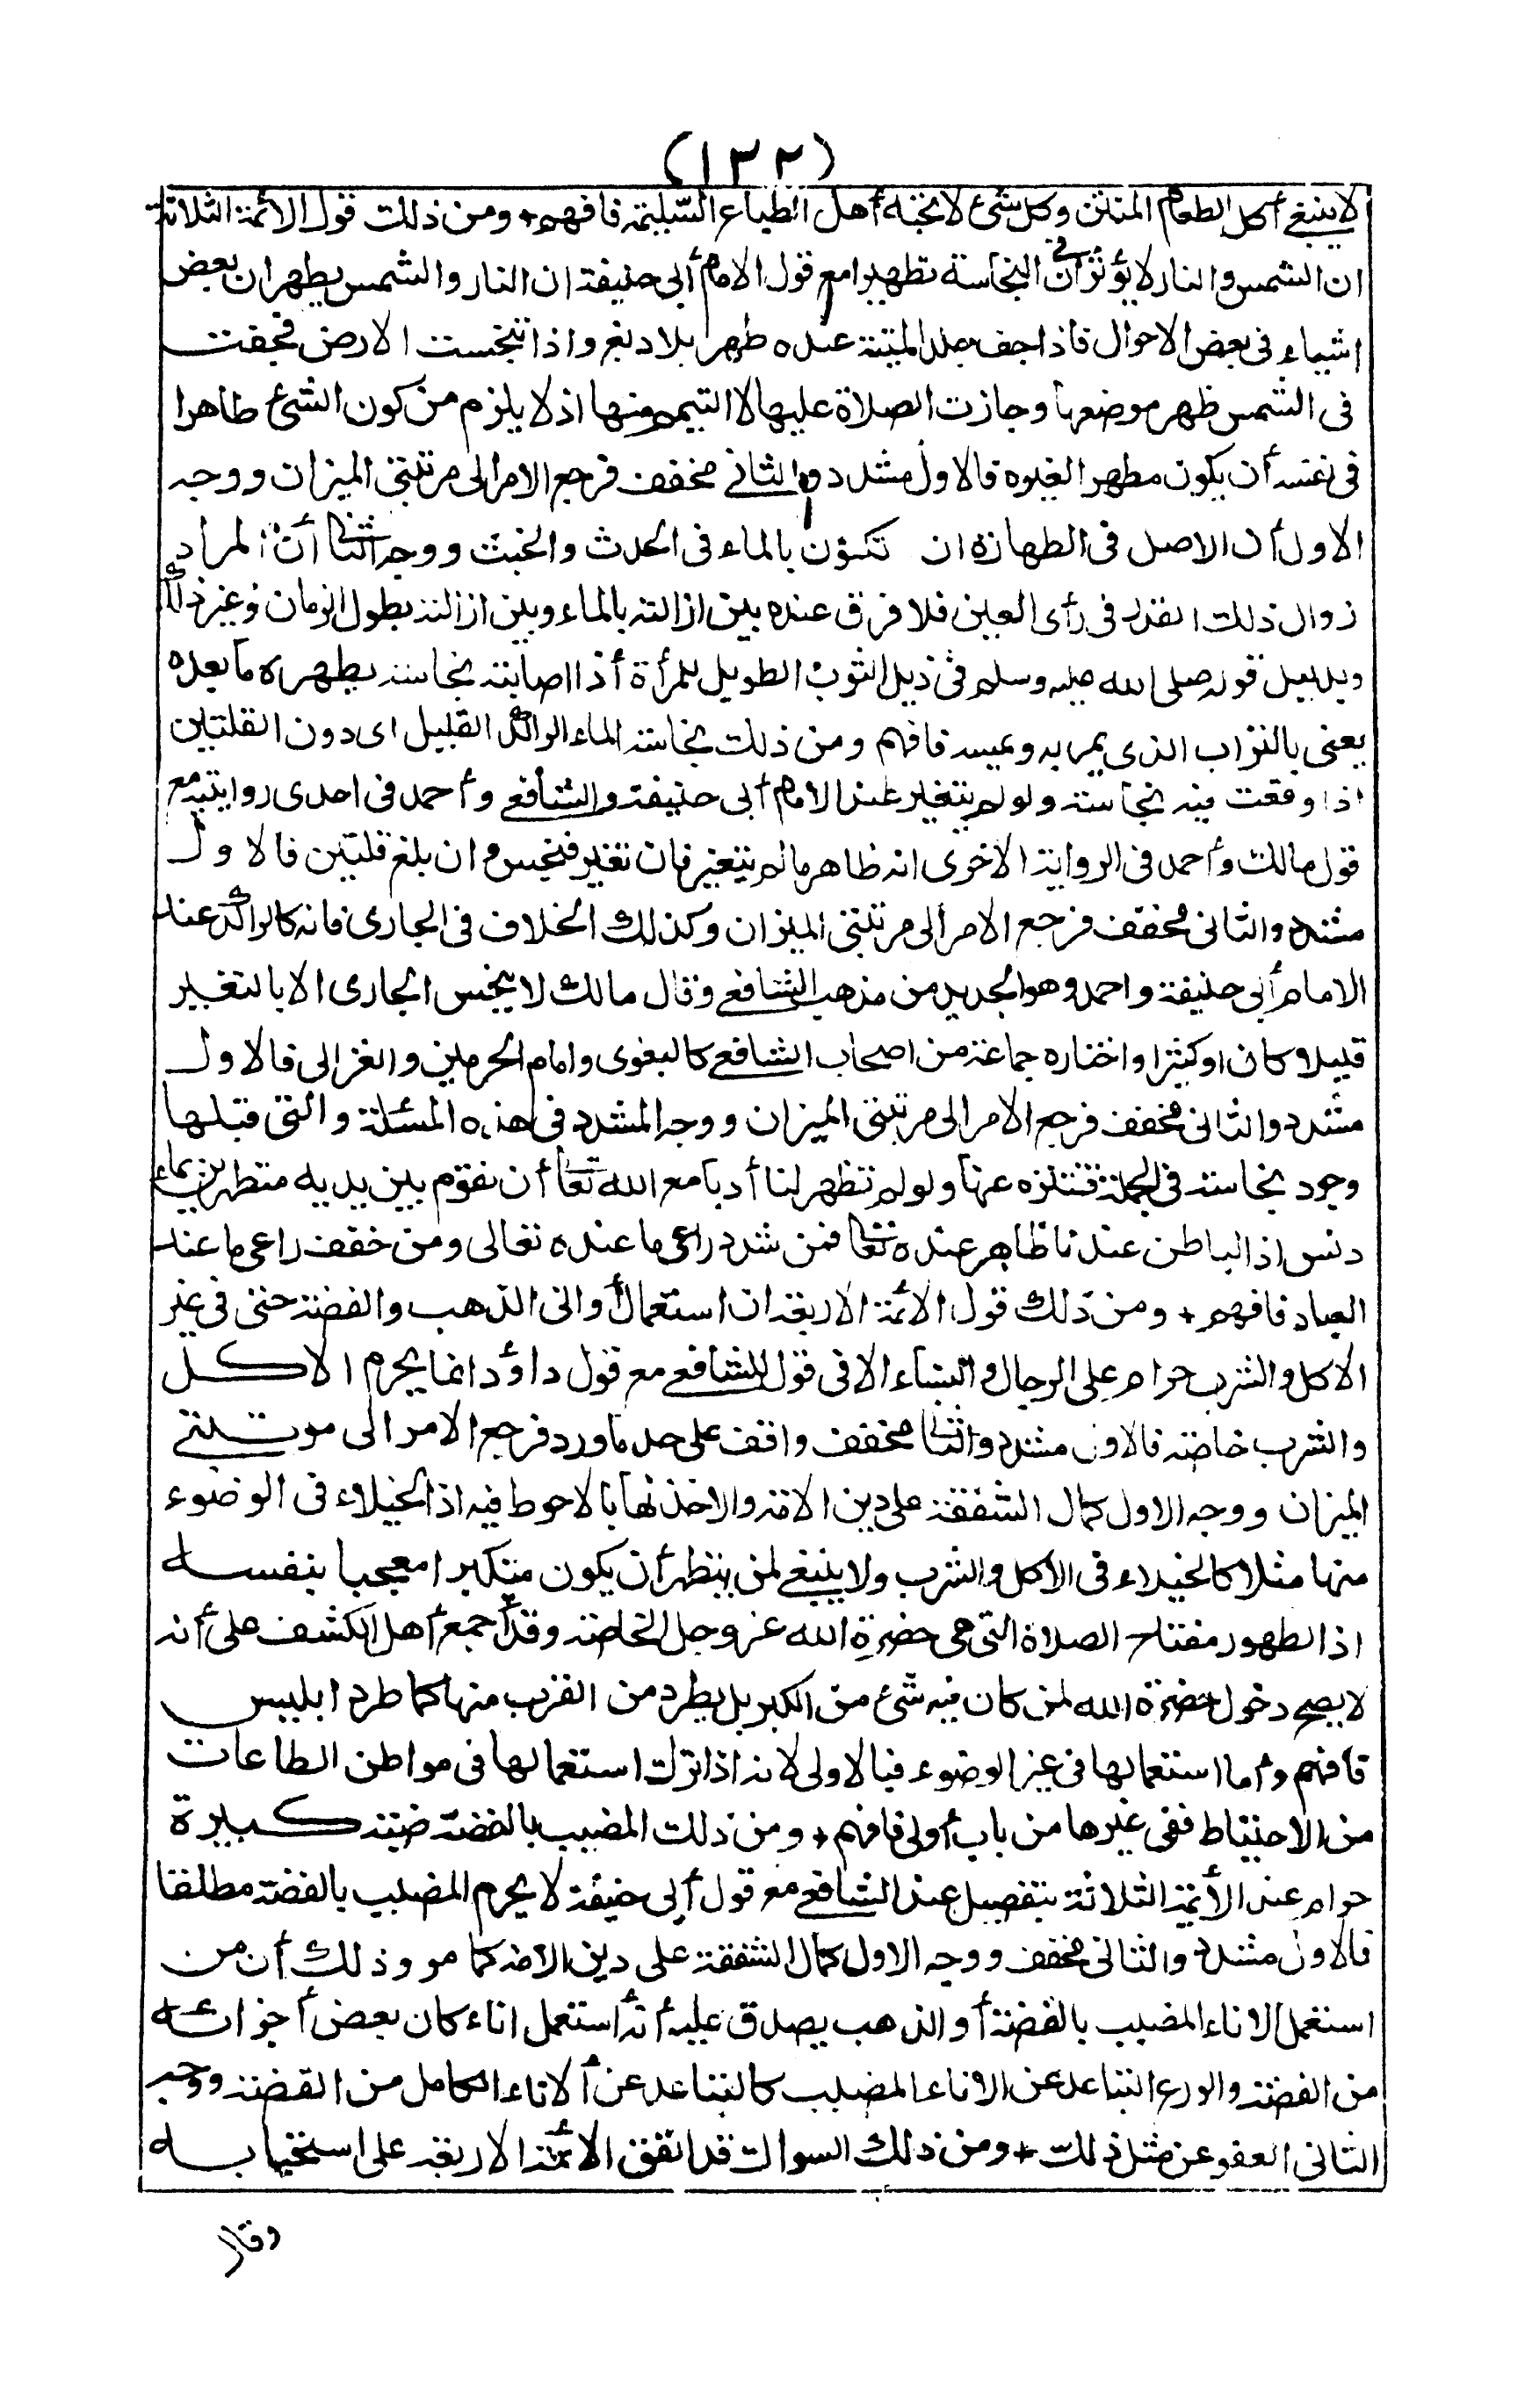 (١٣٢)
لا ينبغي أكل الطعام المنتن وكل شئ لا تحبه أهل الطباع السليمة فافهم + ومن ذلك قول الائمة الثلاثة
ان الشمس والنار لا يؤثران في النجاسة تطهيرا مع قول الامام أبى حنيفة ان النار والشمس يطهران بعض
اشياء فى بعض الاحوال فاذا جف جلد الميتة عنده طهر بلا دبغ واذا تنجست الارض فجفت
فى الشمس طهر موضعها وجازت الصلاة عليها لا التيمم منها اذ لا يلزم من كون الشئ طاهرا
فى نفسه أن يكون مطهر الغيره فالاول مشدد والثاني مخفف فرجع الامر الى مرتبتى الميزان ووجه
الاول أن الاصل فى الطهارة ان تكون بالماء فى الحدث والخبث ووجه الثانى أن المراد
زوال ذلك القذر فى رأى العين فلا فرق عنده بين ازالته بالماء وبين ازالته بطول الزمان وغير ذلك
وبدليل قوله صلى الله عليه وسلم فى ذيل الثوب الطويل للمرأة أذا اصابته نجاسة يطهره ما بعده
يعنى بالتراب الذى يمر به ويمسه فافهم ومن ذلك نجاسة الماء الراكد القليل اى دون القلتين
اذا وقعت فيه نجاسة ولو لم يتغير عند الامام أبى حنيفة والشافعي وأحمد فى احدى روايتيه مع
قول مالك وأحمد فى الرواية الاخرى انه طاهر مالم يتغير فان تغير فنجس وان بلغ قلتين فالاول
مشدد والثانى مخفف فرجع الامر الى مرتبتى الميزان وكذلك الخلاف فى الجارى فانه كالراكد عند
الامام أبى حنيفة واحمد وهو الجديد من مذهب الشافعي وقال مالك لا ينجس الجارى الا بالتغير
قليلا كان او كثيرا واختاره جماعة من اصحاب الشافعي كالبغوى وامام الحرمين والغزالى فالاول
مشدد والثانى مخفف فرجع الامر الى مرتبتى الميزان ووجه المشدد فى هذه المسئلة والتى قبلها
وجود نجاسة فى الجملة فنتنزه عنها ولو لم تظهر لنا أدبا مع الله تعالى أن نقوم بين يديه متطهرين بماء
دنس اذ الباطن عندنا ظاهر عنده تعالى فمن شدد راعى ما عنده تعالى ومن خفف راعى ما عند
العباد فافهم + ومن ذلك قول الائمة الاربعة ان استعمال أوانى الذهب والفضة حتى فى غير
الاكل والشرب حرام على الرجال والنساء الا فى قول للشافعي مع قول داؤد انما يحرم الاكل
والشرب خاصة فالاول مشدد والثانى مخفف واقف على حد ما ورد فرجع الامر الى مرتبتي
الميزان ووجه الاول كمال الشفقة على دين الامة والاخذ لها بالاحوط فيه اذ الخيلاء فى الوضوء
منها مثلا كالخيلاء فى الأكل والشرب ولا ينبغي لمن يتطهر أن يكون متكبرا معجبا بنفسه
اذ الطهور مفتاح الصلاة التى هى حضرة الله عز وجل الخاصة وقد أجمع أهل الكشف على أنه
لا يصح دخول حضرة الله لمن كان فيه شئ من الكبر بل يطرد من القرب منها كما طرد ابليس
فافهم وأما استعمالها فى غير الوضوء فبالاولى لانه اذا ترك استعمالها فى مواطن الطاعات
من الاحتياط ففى غيرها من باب أولى فافهم + ومن ذلك المضبب بالفضة ضبة كبيرة
حرام عند الأئمة الثلاثة بتفصيل عند الشافعي مع قول أبى حنيفة لا يحرم المضبب بالفضة مطلقا
فالاول مشدد والثانى مخفف ووجه الاول كمال الشفقة على دين الامة كما مر وذلك أن من
استعمل الاناء المضبب بالفضة أو الذهب يصدق عليه أنه أستعمل اناء كان بعض أجزائه
من الفضة والورع التباعد عن الاناء المضبب كالتباعد عن ألاناء الكامل من الفضة ووجه
الثانى العفو عن مثل ذلك + ومن ذلك السواك قد اتفق الأئمة الاربعة على استحبابه
وقال